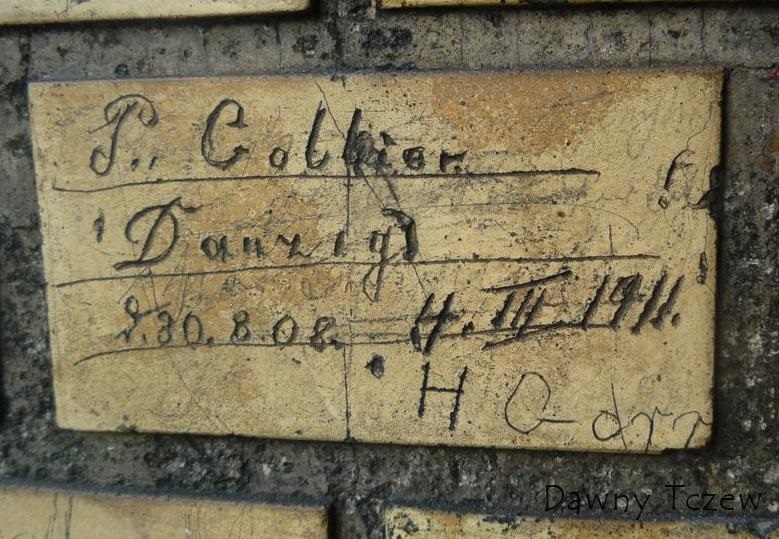 P. Collier
Danzig
30.8.08. 4.III 1911.
H
Dawny Tczew